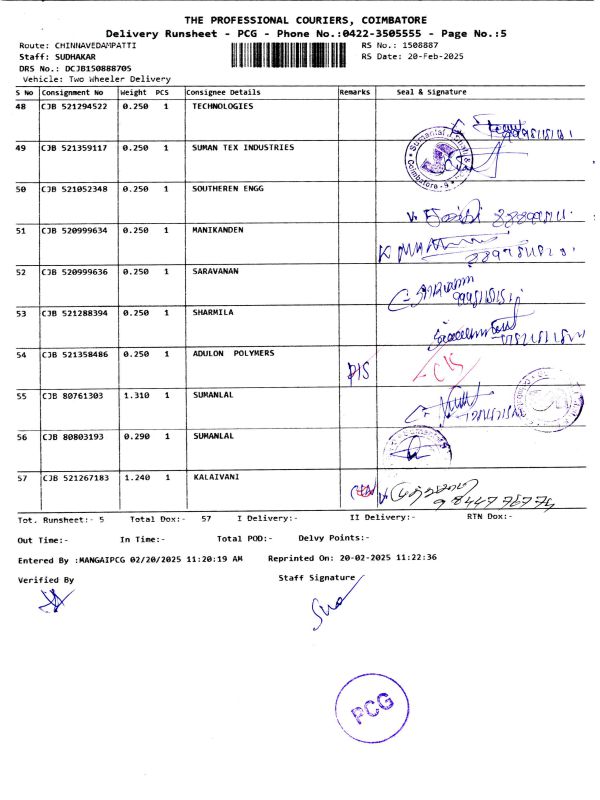 THE PROFESSIONAL COURIERS, COIMBATORE
Delivery Runsheet - PCG - Phone No.:0422-3505555 - Page No.:5
Route: CHINNAVEDAMPATTI RS No.: 1508887
Staff: SUDHAKAR RS Date: 20-Feb-2025
DRS No.: DCJB150888705
Vehicle: Two Wheeler Delivery
S No Consignment No Weight PCS Consignee Details Remarks Seal & Signature
48 CJB 521294522 0.250 1 TECHNOLOGIES
49 CJB 521359117 0.250 1 SUMAN TEX INDUSTRIES
50 CJB 521052348 0.250 1 SOUTHEREN ENGG
51 CJB 520999634 0.250 1 MANIKANDEN
52 CJB 520999636 0.250 1 SARAVANAN
53 CJB 521288394 0.250 1 SHARMILA
54 CJB 521358486 0.250 1 ADULON POLYMERS
55 CJB 80761303 1.310 1 SUMANLAL
56 CJB 80803193 0.290 1 SUMANLAL
57 CJB 521267183 1.240 1 KALAIVANI
Tot. Runsheet:- 5 Total Dox:- 57 I Delivery:- II Delivery:- RTN Dox:-
Out Time:- In Time:- Total POD:- Delvy Points:-
Entered By :MANGAIPCG 02/20/2025 11:20:19 AM Reprinted On: 20-02-2025 11:22:36
Verified By Staff Signature
PCG